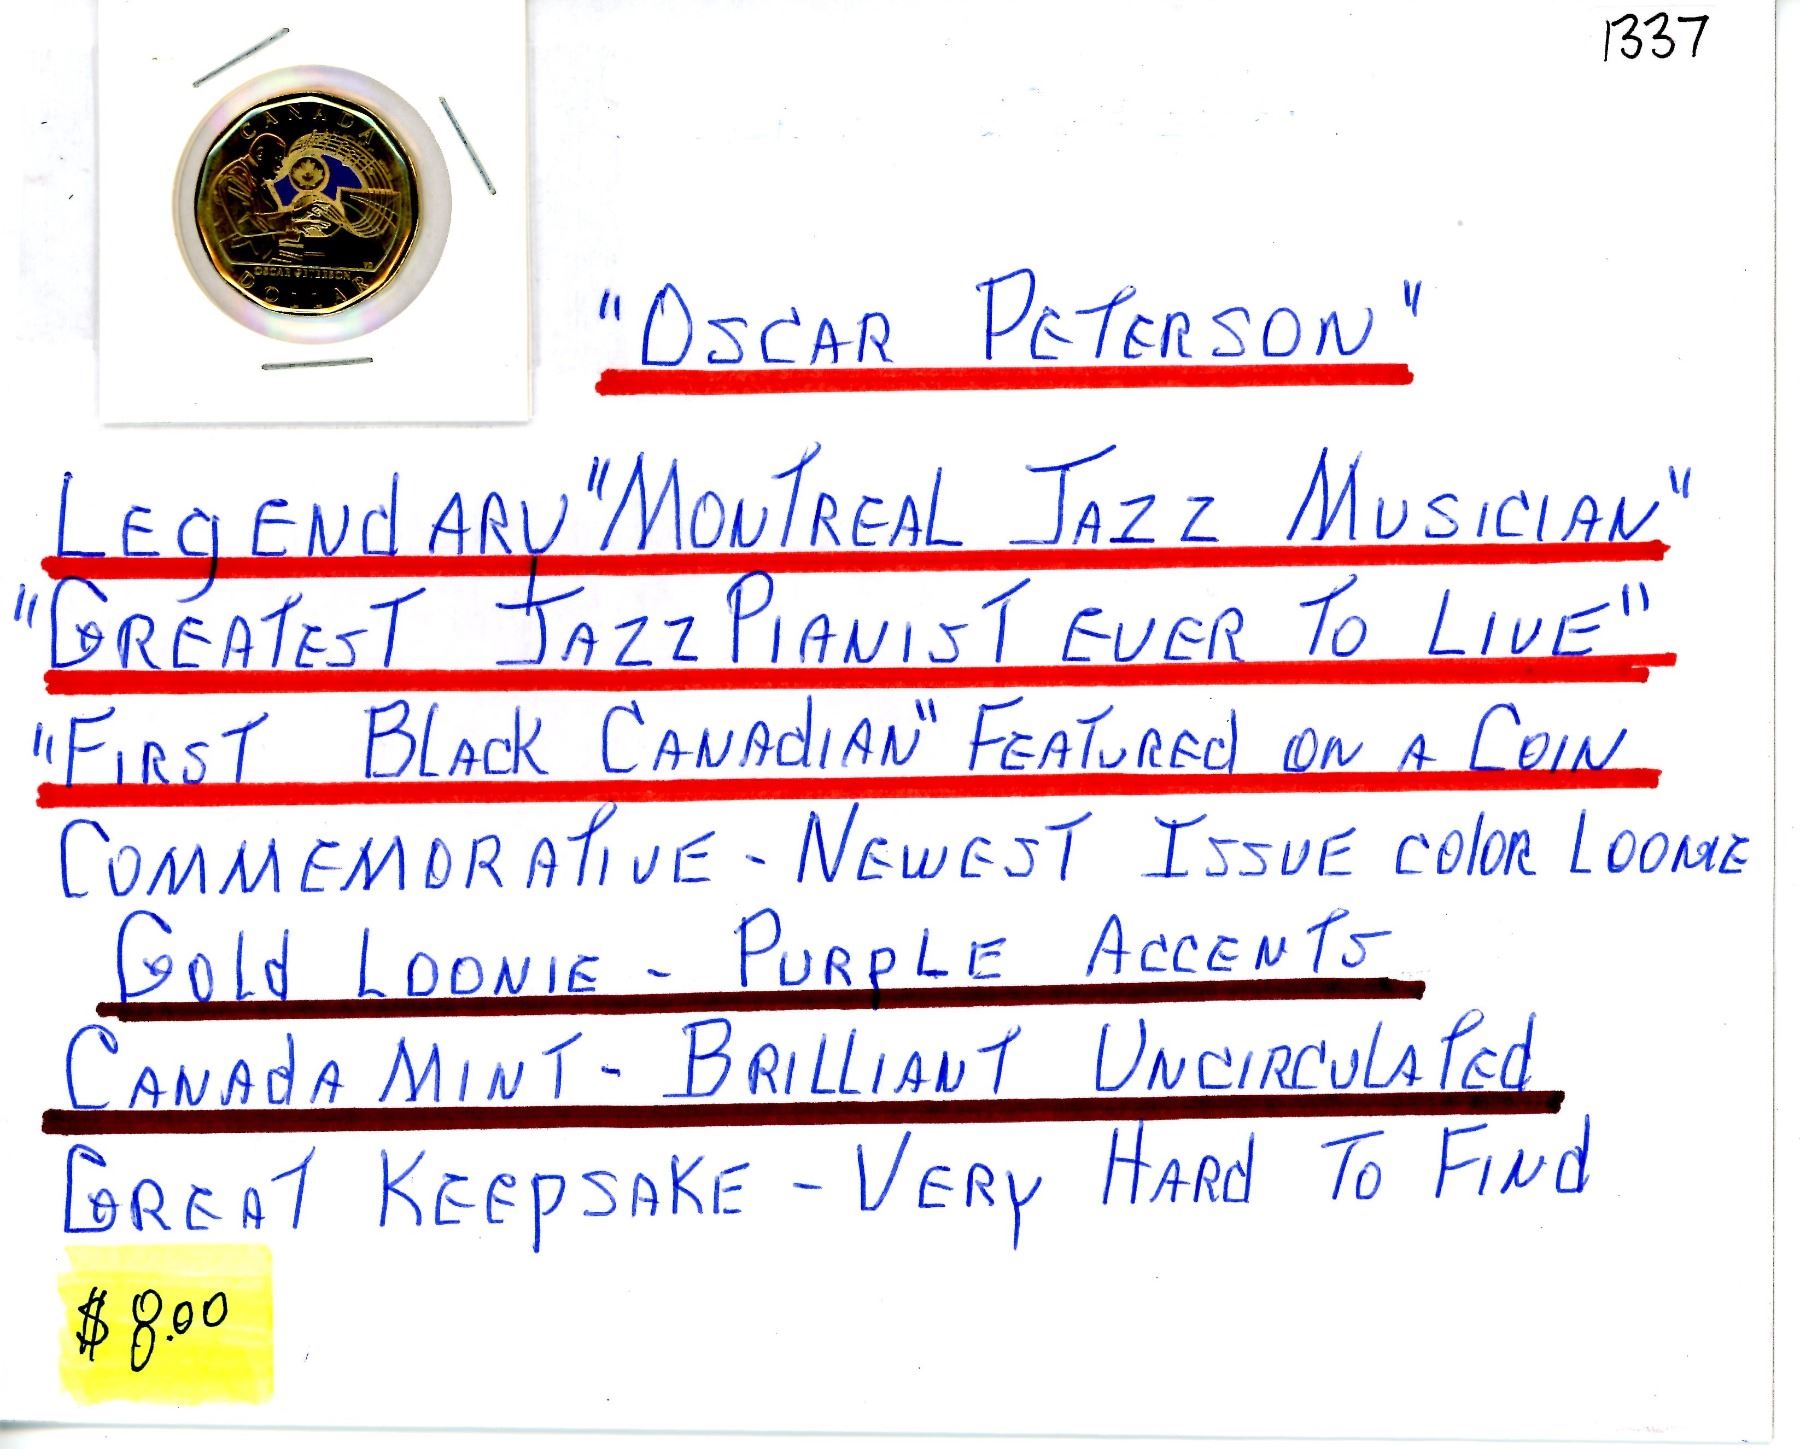 1337
CANADA
OSCAR PETERSON
DOLLAR
"OSCAR PETERSON"
LEgENd ARY "MONTREAL JAZZ MUSICIAN"
"GREATEST JAZZ PIANIST EVER TO LIVE"
"FIRST BLACK CANAdIAN" FEATUREd ON A COIN
COMMEMORATIVE - NEWEST ISSUE COLOR LOONIE
GOLd LOONIE - PURPLE ACCENTS
CANAdA MINT - BRILLIANT UNCIRCULATEd
GREAT KEEPSAKE - VERY HARd TO FINd
$8.00